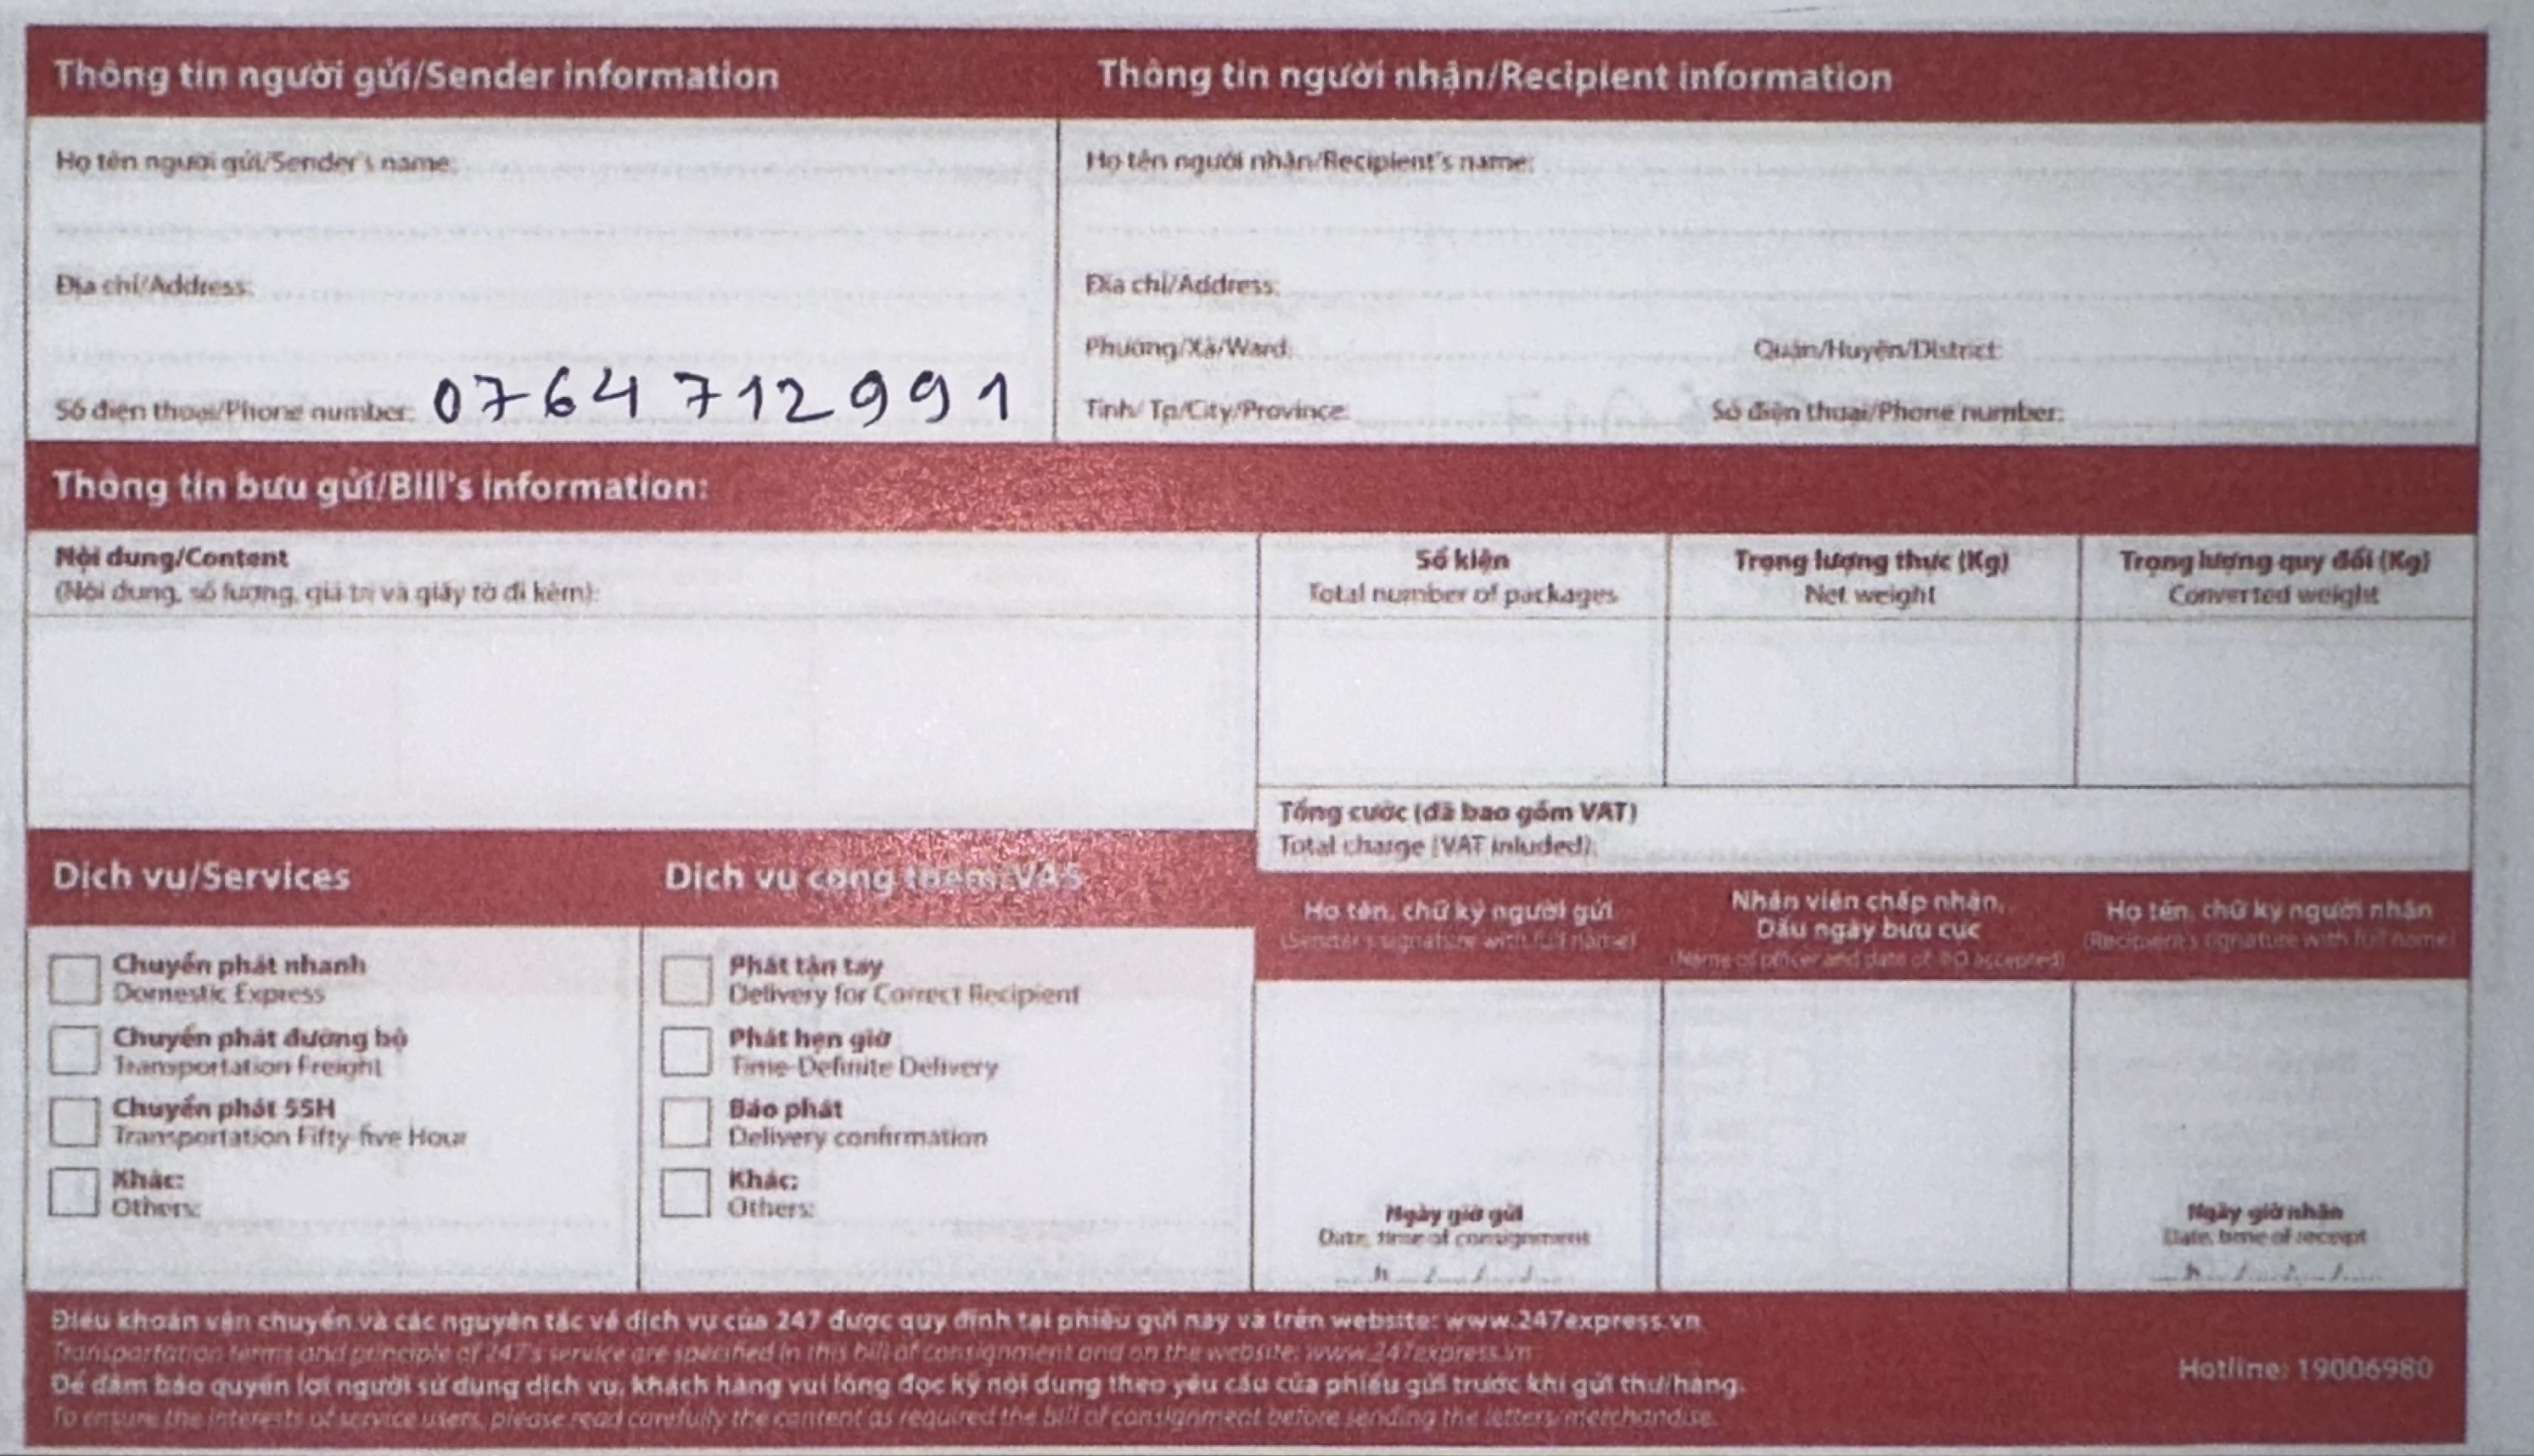 Thông tin người gửi/Sender information
Thông tin người nhận/Recipient information
Họ tên người gửi/Sender's name:
Địa chỉ/Address:
Số điện thoại/Phone number: 0764 712991
Họ tên người nhận/Recipient's name:
Địa chỉ/Address:
Phường/Xã/Ward: Quận/Huyện/District:
Tỉnh/ Tp/City/Province: Số điện thoại/Phone number:
Thông tin bưu gửi/Bill's information:
Nội dung/Content
(Nội dung, số lượng, giá trị và giấy tờ đi kèm):
Số kiện
Total number of packages
Trọng lượng thực (Kg)
Net weight
Trọng lượng quy đổi (Kg)
Converted weight
Tổng cước (đã bao gồm VAT)
Total charge (VAT inluded):
Dịch vụ/Services
Chuyển phát nhanh
Domestic Express
Chuyển phát đường bộ
Transportation Freight
Chuyển phát 55H
Transportation Fifty-five Hour
Khác:
Others:
Dịch vụ cộng thêm/VAS
Phát tận tay
Delivery for Correct Recipient
Phát hẹn giờ
Time-Definite Delivery
Báo phát
Delivery confirmation
Khác:
Others:
Họ tên, chữ ký người gửi
(Sender's signature with full name)
Nhân viên chấp nhận,
Dấu ngày bưu cục
(Name of officer and date of PO accepted)
Họ tên, chữ ký người nhận
(Recipient's signature with full name)
Ngày giờ gửi
Date, time of consignment
h / / /
Ngày giờ nhận
Date, time of receipt
h / / /
Điều khoản vận chuyển và các nguyên tắc về dịch vụ của 247 được quy định tại phiếu gửi này và trên website: www.247express.vn
Transportation terms and principle of 247's service are specified in this bill of consignment and on the website: www.247express.vn
Để đảm bảo quyền lợi người sử dụng dịch vụ, khách hàng vui lòng đọc kỹ nội dung theo yêu cầu của phiếu gửi trước khi gửi thư/hàng.
To ensure the interests of service users, please read carefully the content as required the bill of consignment before sending the letters/merchandise.
Hotline: 19006980